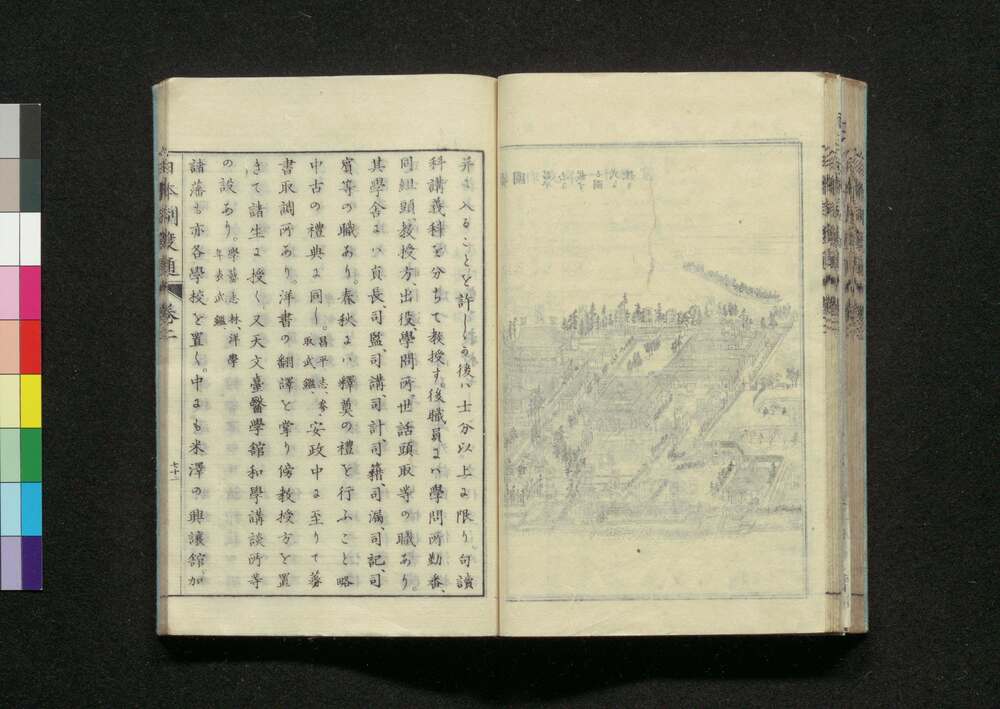 弁よ入ることを許しゝが後ハ士分以上よ限り句讀
科講義科を分ちて教授す。後職員よハ學問所勤番、
同組頭、教授方、出役、學問所世話頭取等の職あり。
其學舍よハ貢長、司監、司講、司計、司籍、司漏、司記、司
賓等の職あり。春秋よハ釋奠の禮を行ふこと略
中古の禮典よ同し。
昌平志、書
取武鑑、
安政中よ至りて蕃
書取調所あり。洋書の翻譯を掌り傍教授方を置
きて諸生よ授く又天文臺醫學館和學講談所等
の設あり。
學藝志林、洋學
年表武鑑
諸藩も亦各學校を置く。中よも米澤の興讓館加
日本制度通
卷二
七十二